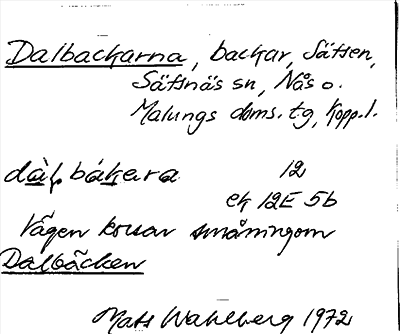 Dalbackarna, backar, Sätsen,
Säfsnäs sn, Nås o.
Malungs doms. tg, Kopp. l.
dàl̥bákara 12
ek 12E 5b
Vägen korsar småningom
Dalbäcken
Mats Wahlberg 1972